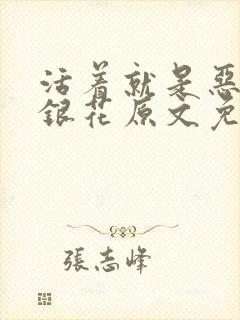 活着就是恶
銀花原文免
張志峰